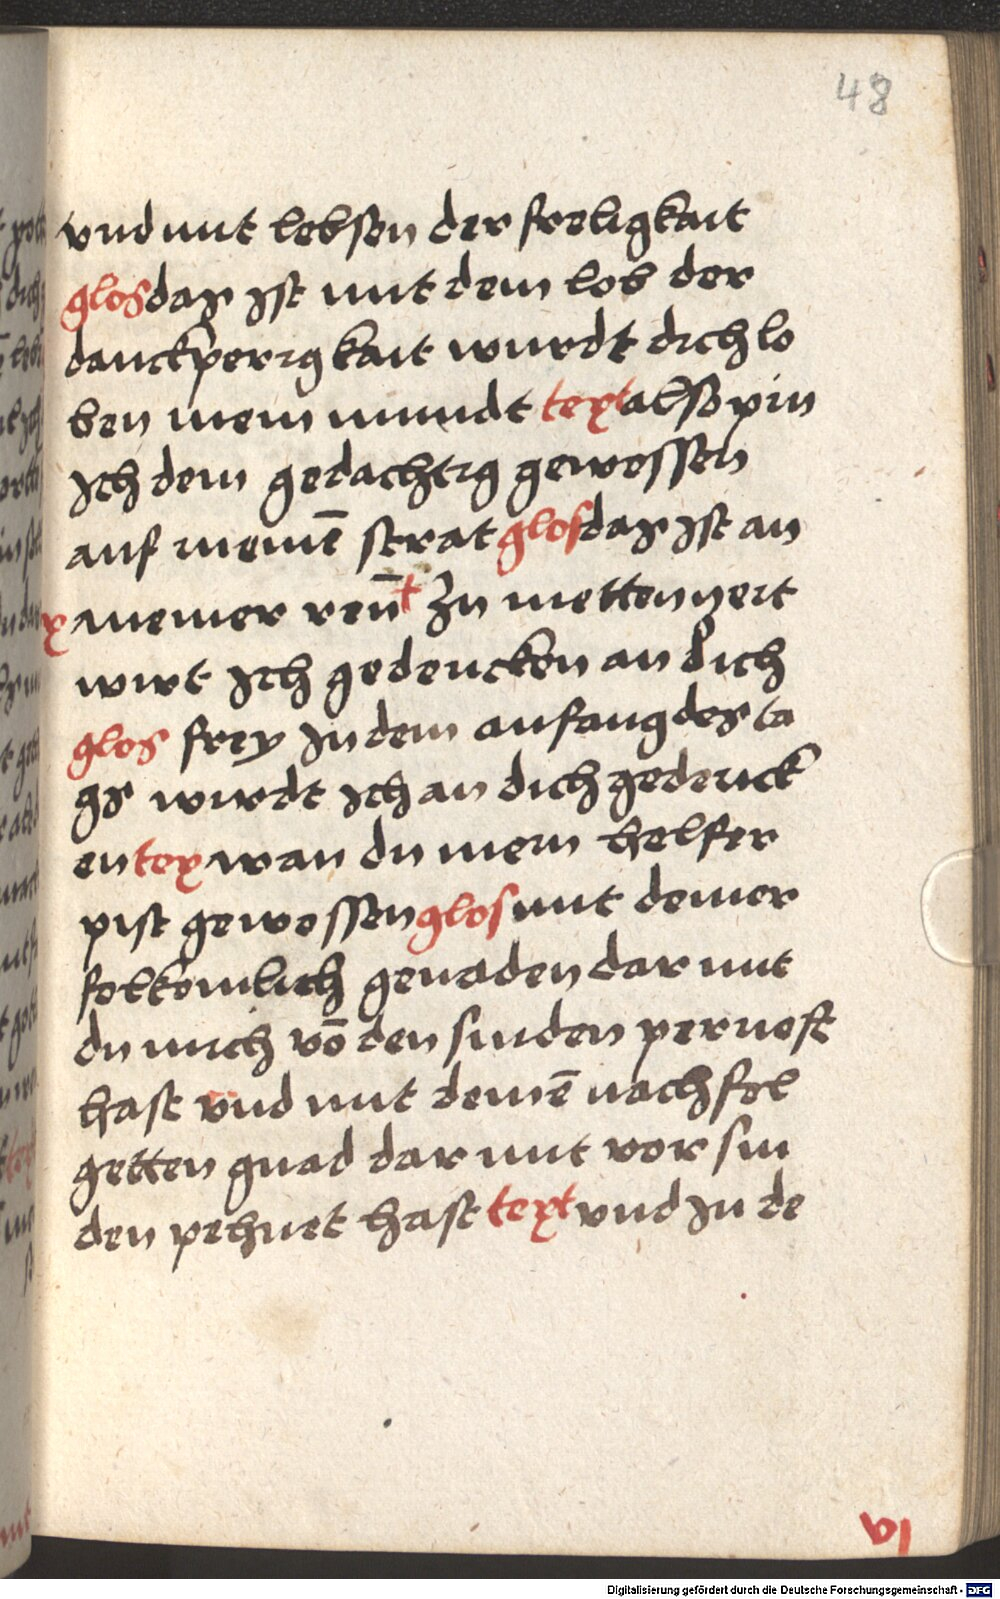 48
vnd mit lebsen der freligkait
glos das ist mit dem lob der
danckperigkait wurdt dich lo
ben mein mundt text also pin
ich dem gedachtig gewessen
auf meinē strat glos das ist an
meiner reuͤ t Zu metten zeit
wirt ich gedencken an dich
glos frey in dem anfang des ta
gs wirdt ich an dich gedenck
en tex wan du mein helfer
pist gewessen glos mit deiner
folkomlich genaden dar mit
du mich vō den sunden perneft
hast vnd mit deinē nachfol
getten gnad dar mit vor sun
den pehuet hast text vnd in de
vi
Digitalisierung gefördert durch die Deutsche Forschungsgemeinschaft - DFG